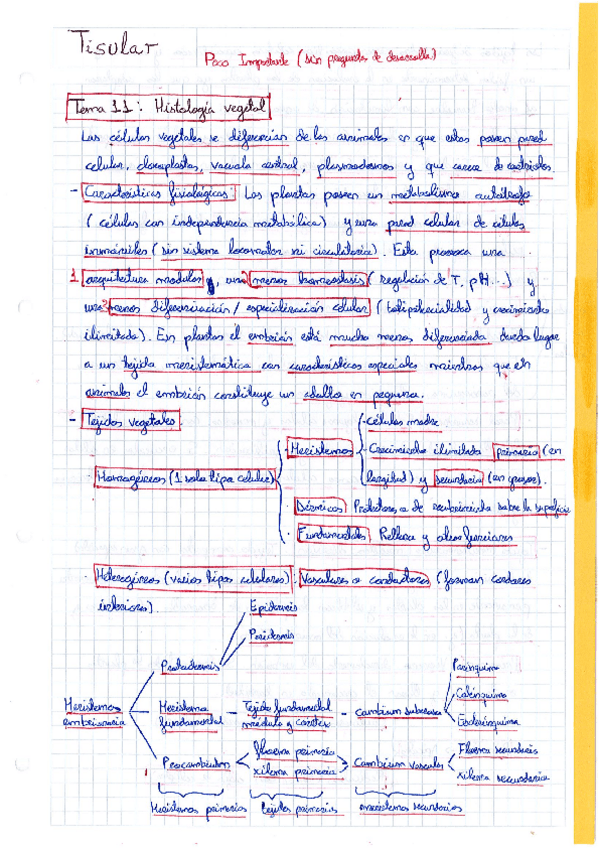 Tisular
Poco Importante (sin preguntas de desarrollo)
Tema 11: Histología vegetal
Las células vegetales se diferencian de los animales en que estas poseen pared
celular, cloroplastos, vacuola central, plasmodesmos y que carece de centriolos.
- Características fisiológicas: Las plantas poseen un metabolismo autótrofo
(células con independencia metabólica) y una pared celular de células
inmóviles (sin sistema locomotor ni circulatorio). Esto provoca una
1 arquitectura modular, una menos homeostasis (regulación de T, pH...) y
una menos diferenciación/especialización celular (totipotencialidad y crecimiento
ilimitado). En plantas el embrión está mucho menos diferenciado dando lugar
a un tejido meristemático con características especiales mientras que en
animales el embrión constituye un adulto en pequeño.
- Tejidos vegetales:
Homogéneos (1 solo tipo celular)
Meristemos
· Células madre
- Crecimiento ilimitado primario (en
longitud) y secundario (en grosor).
· Dérmicos Protectores o de recubrimiento sobre la superficie
· Fundamentales Relleno y otras funciones
· Heterogéneos (varios tipos celulares): Vasculares o conductores (forman cordones
interiores).
Meristemos embrionario
Protodermis
Epidermis
Peridermis
Meristema fundamental - Tejido fundamental médula y corteza - Cambium suberoso
Parénquima
Colénquima
Esclerénquima
Procambium
floema primario
xilema primario
Cambium vascular
Floema secundario
Xilema secundario
Meristemos primarios
tejidos primarios
meristemos secundarios